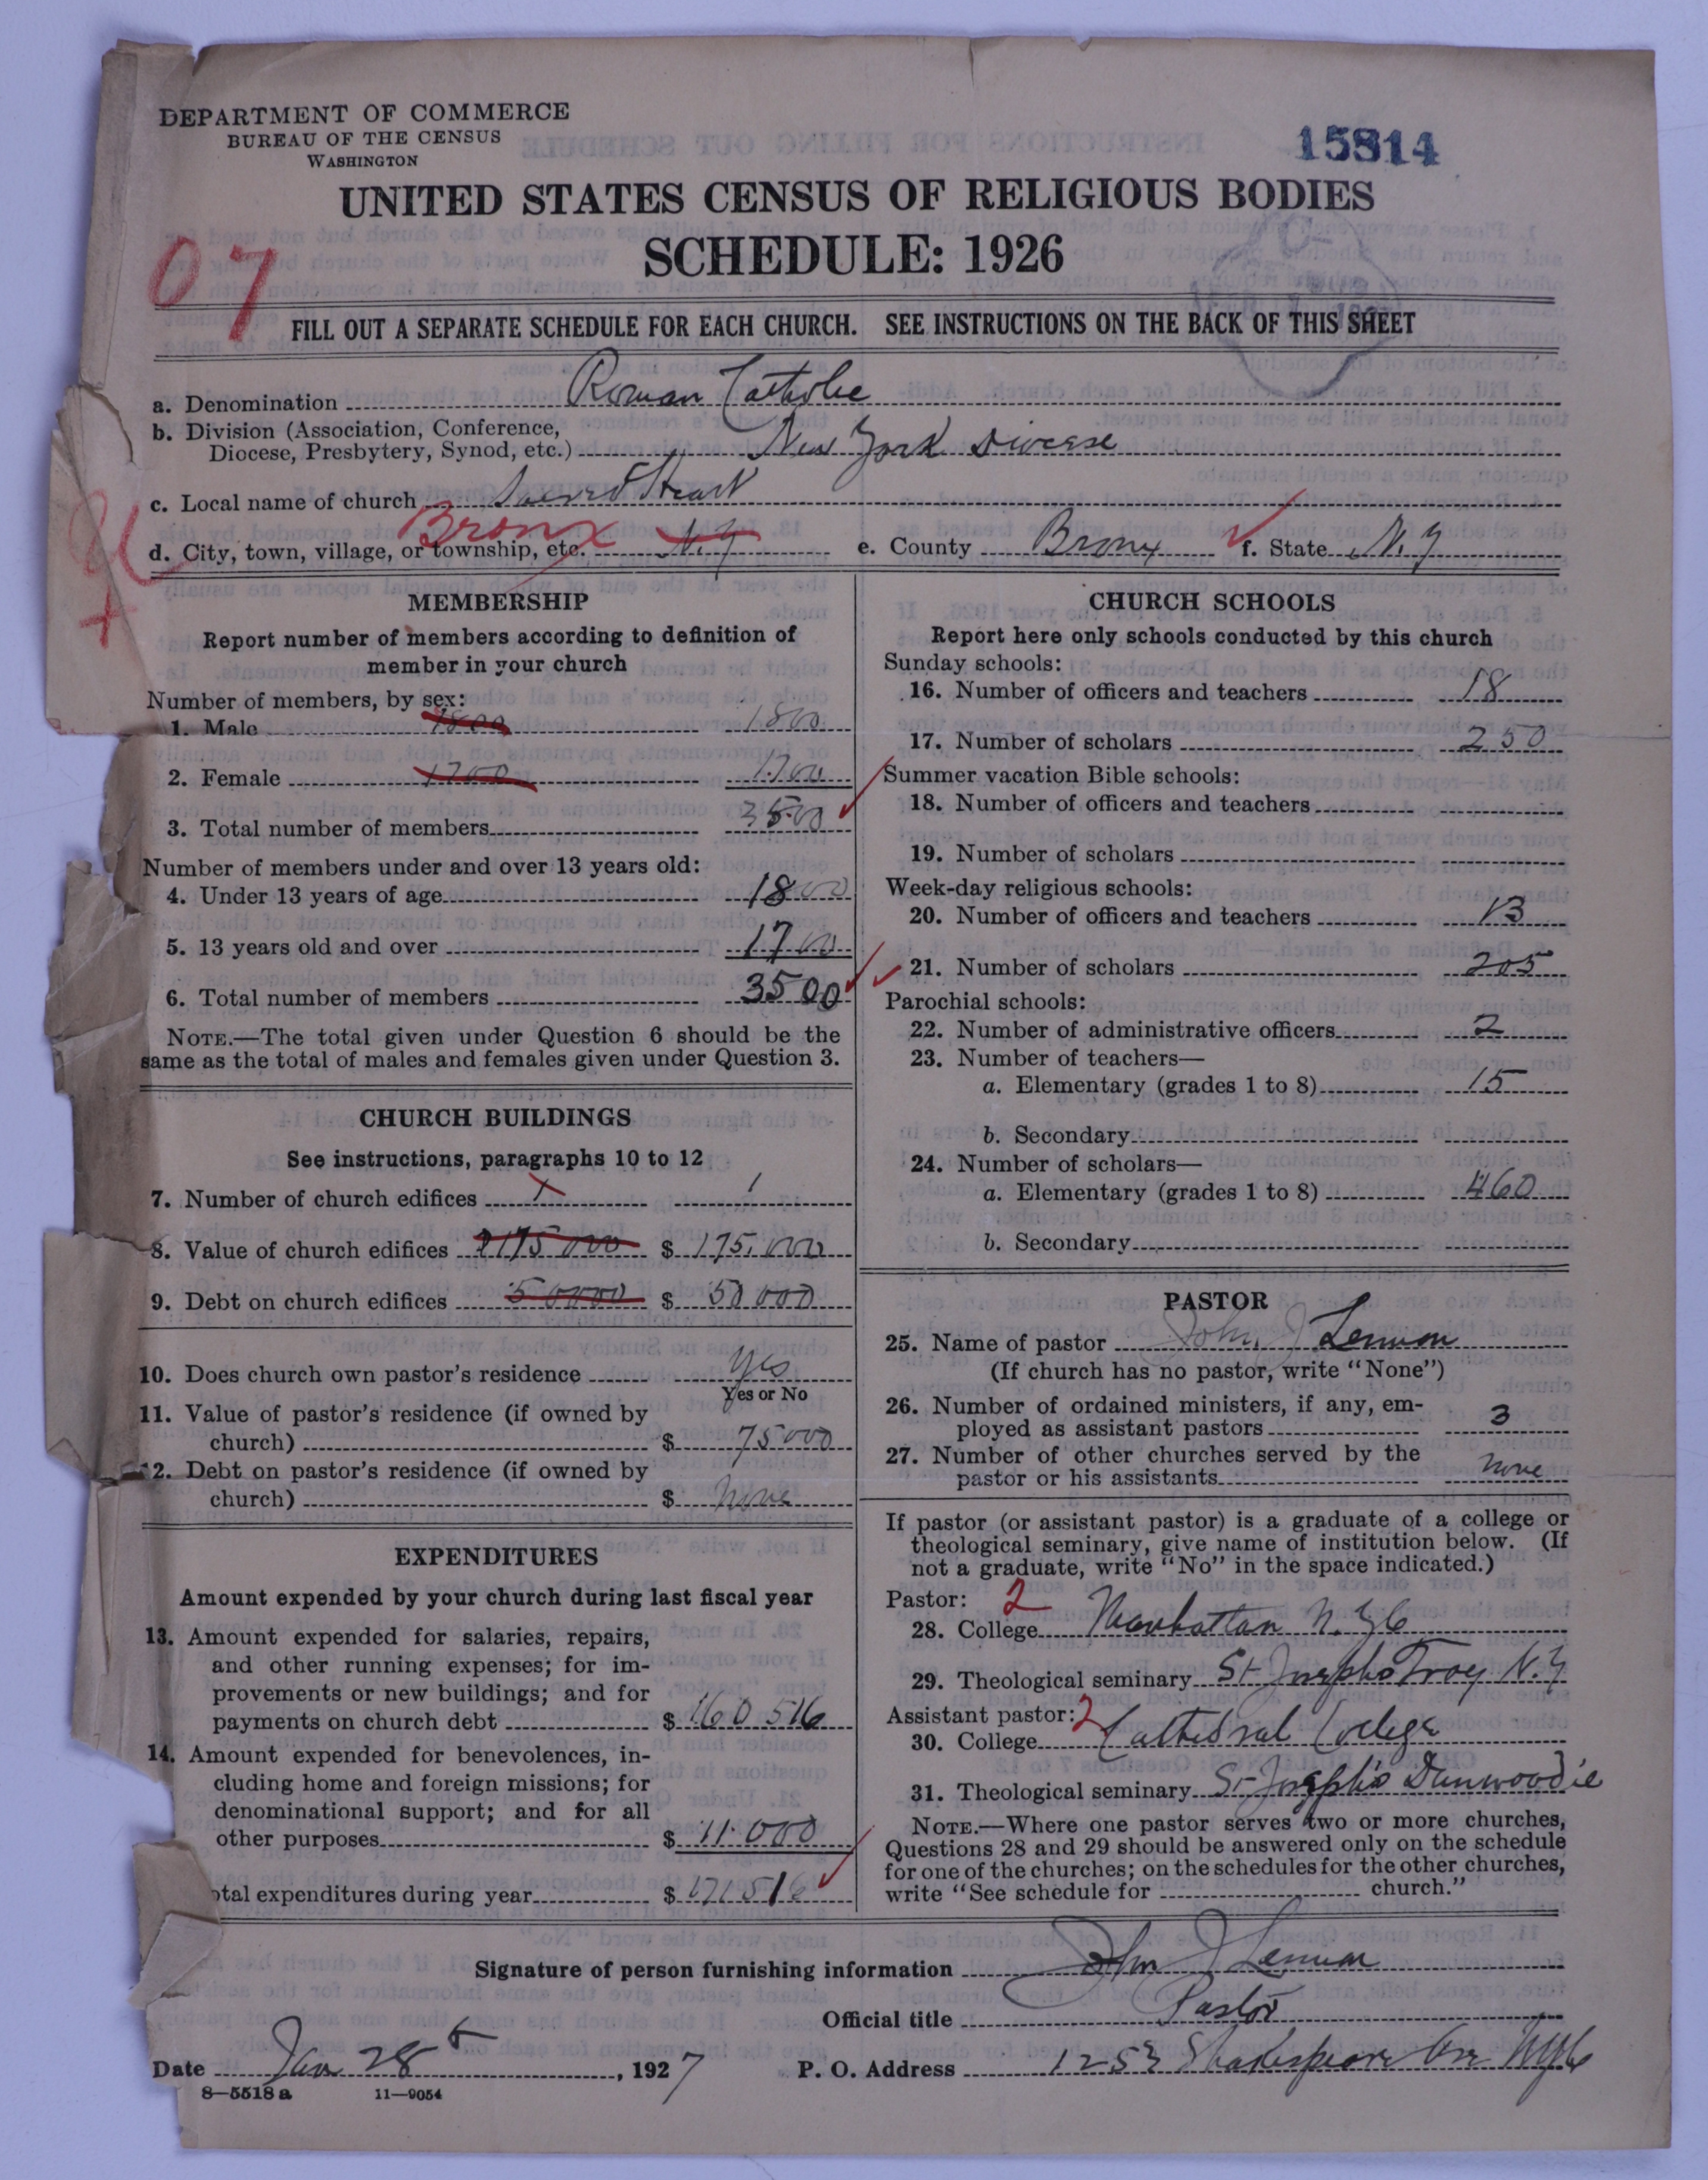 DEPARTMENT OF COMMERCE
BUREAU OF THE CENSUS
WASHINGTON
15814
UNITED STATES CENSUS OF RELIGIOUS BODIES
SCHEDULE: 1926
07
FILL OUT A SEPARATE SCHEDULE FOR EACH CHURCH. SEE INSTRUCTIONS ON THE BACK OF THIS SHEET
a. Denomination Roman Catholic
b. Division (Association, Conference,
Diocese, Presbytery, Synod, etc.) New York Diocese
c. Local name of church Sacred Heart
d. City, town, village, or township, etc. Bronx N.Y e. County Bronx f. State N.Y
MEMBERSHIP
Report number of members according to definition of
member in your church
Number of members, by sex:
1. Male 1800 1800
2. Female 1700 1700
3. Total number of members 3500
Number of members under and over 13 years old:
4. Under 13 years of age 1800
5. 13 years old and over 1700
6. Total number of members 3500
NOTE.—The total given under Question 6 should be the
same as the total of males and females given under Question 3.
CHURCH BUILDINGS
See instructions, paragraphs 10 to 12
7. Number of church edifices 1 1
8. Value of church edifices 175000 $ 175,000
9. Debt on church edifices 50000 $ 50000
10. Does church own pastor's residence yes
Yes or No
11. Value of pastor's residence (if owned by
church) $ 75000
12. Debt on pastor's residence (if owned by
church) $ None
EXPENDITURES
Amount expended by your church during last fiscal year
13. Amount expended for salaries, repairs,
and other running expenses; for im-
provements or new buildings; and for
payments on church debt $ 160 516
14. Amount expended for benevolences, in-
cluding home and foreign missions; for
denominational support; and for all
other purposes $ 11.000
otal expenditures during year $ 171516
CHURCH SCHOOLS
Report here only schools conducted by this church
Sunday schools:
16. Number of officers and teachers 18
17. Number of scholars 250
Summer vacation Bible schools:
18. Number of officers and teachers
19. Number of scholars
Week-day religious schools:
20. Number of officers and teachers 13
21. Number of scholars 205
Parochial schools:
22. Number of administrative officers 2
23. Number of teachers—
a. Elementary (grades 1 to 8) 15
b. Secondary
24. Number of scholars—
a. Elementary (grades 1 to 8) 460
b. Secondary
PASTOR
25. Name of pastor John J Lennon
(If church has no pastor, write "None")
26. Number of ordained ministers, if any, em-
ployed as assistant pastors 3
27. Number of other churches served by the
pastor or his assistants None
If pastor (or assistant pastor) is a graduate of a college or
theological seminary, give name of institution below. (If
not a graduate, write "No" in the space indicated.)
Pastor: 2
28. College Manhattan N.Y.C
29. Theological seminary St Josephs Troy N.Y
Assistant pastor: 2
30. College Cathedral College
31. Theological seminary St Joseph's Dunwoodie
NOTE.—Where one pastor serves two or more churches,
Questions 28 and 29 should be answered only on the schedule
for one of the churches; on the schedules for the other churches,
write "See schedule for church."
Signature of person furnishing information John J Lennon
Official title Pastor
Date Jan 28th, 1927 P. O. Address 1253 Shakespeare Ave NYC
8—5518 a 11—9054